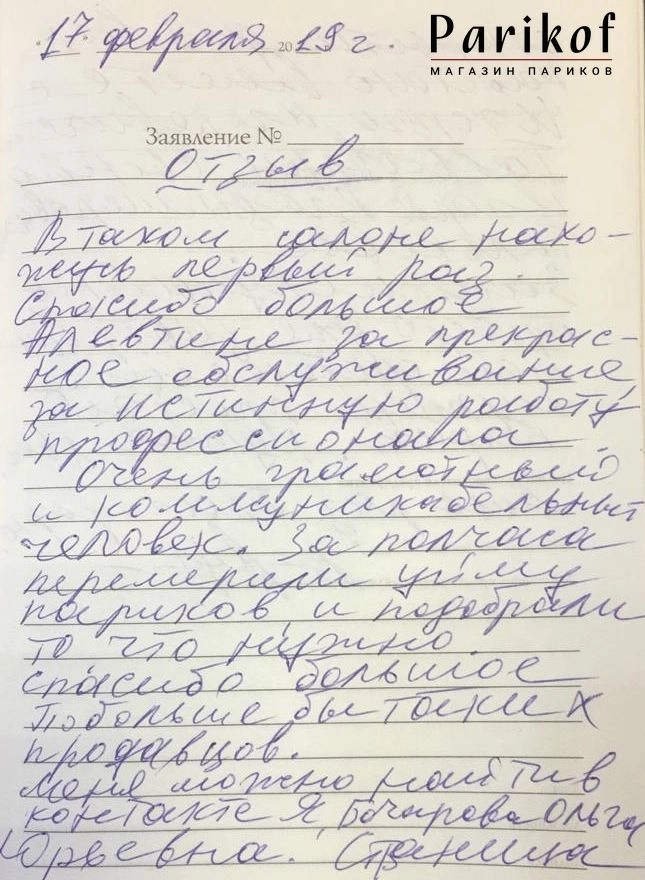 "17" февраля 2019 г.
Parikof
МАГАЗИН ПАРИКОВ
Заявление №
Отзыв
В таком салоне нахо-
жусь первый раз.
Спасибо большое
Алевтине за прекрас-
ное обслуживание,
за истинную работу
профессионала.
Очень грамотный
и коммуникабельный
человек. За полчаса
перемерили уйму
париков и подобрали
то что нужно.
спасибо большое
Побольше бы таких
продавцов.
меня можно найти в
контакте Я, Бочарова Ольга
Юрьевна. Станица